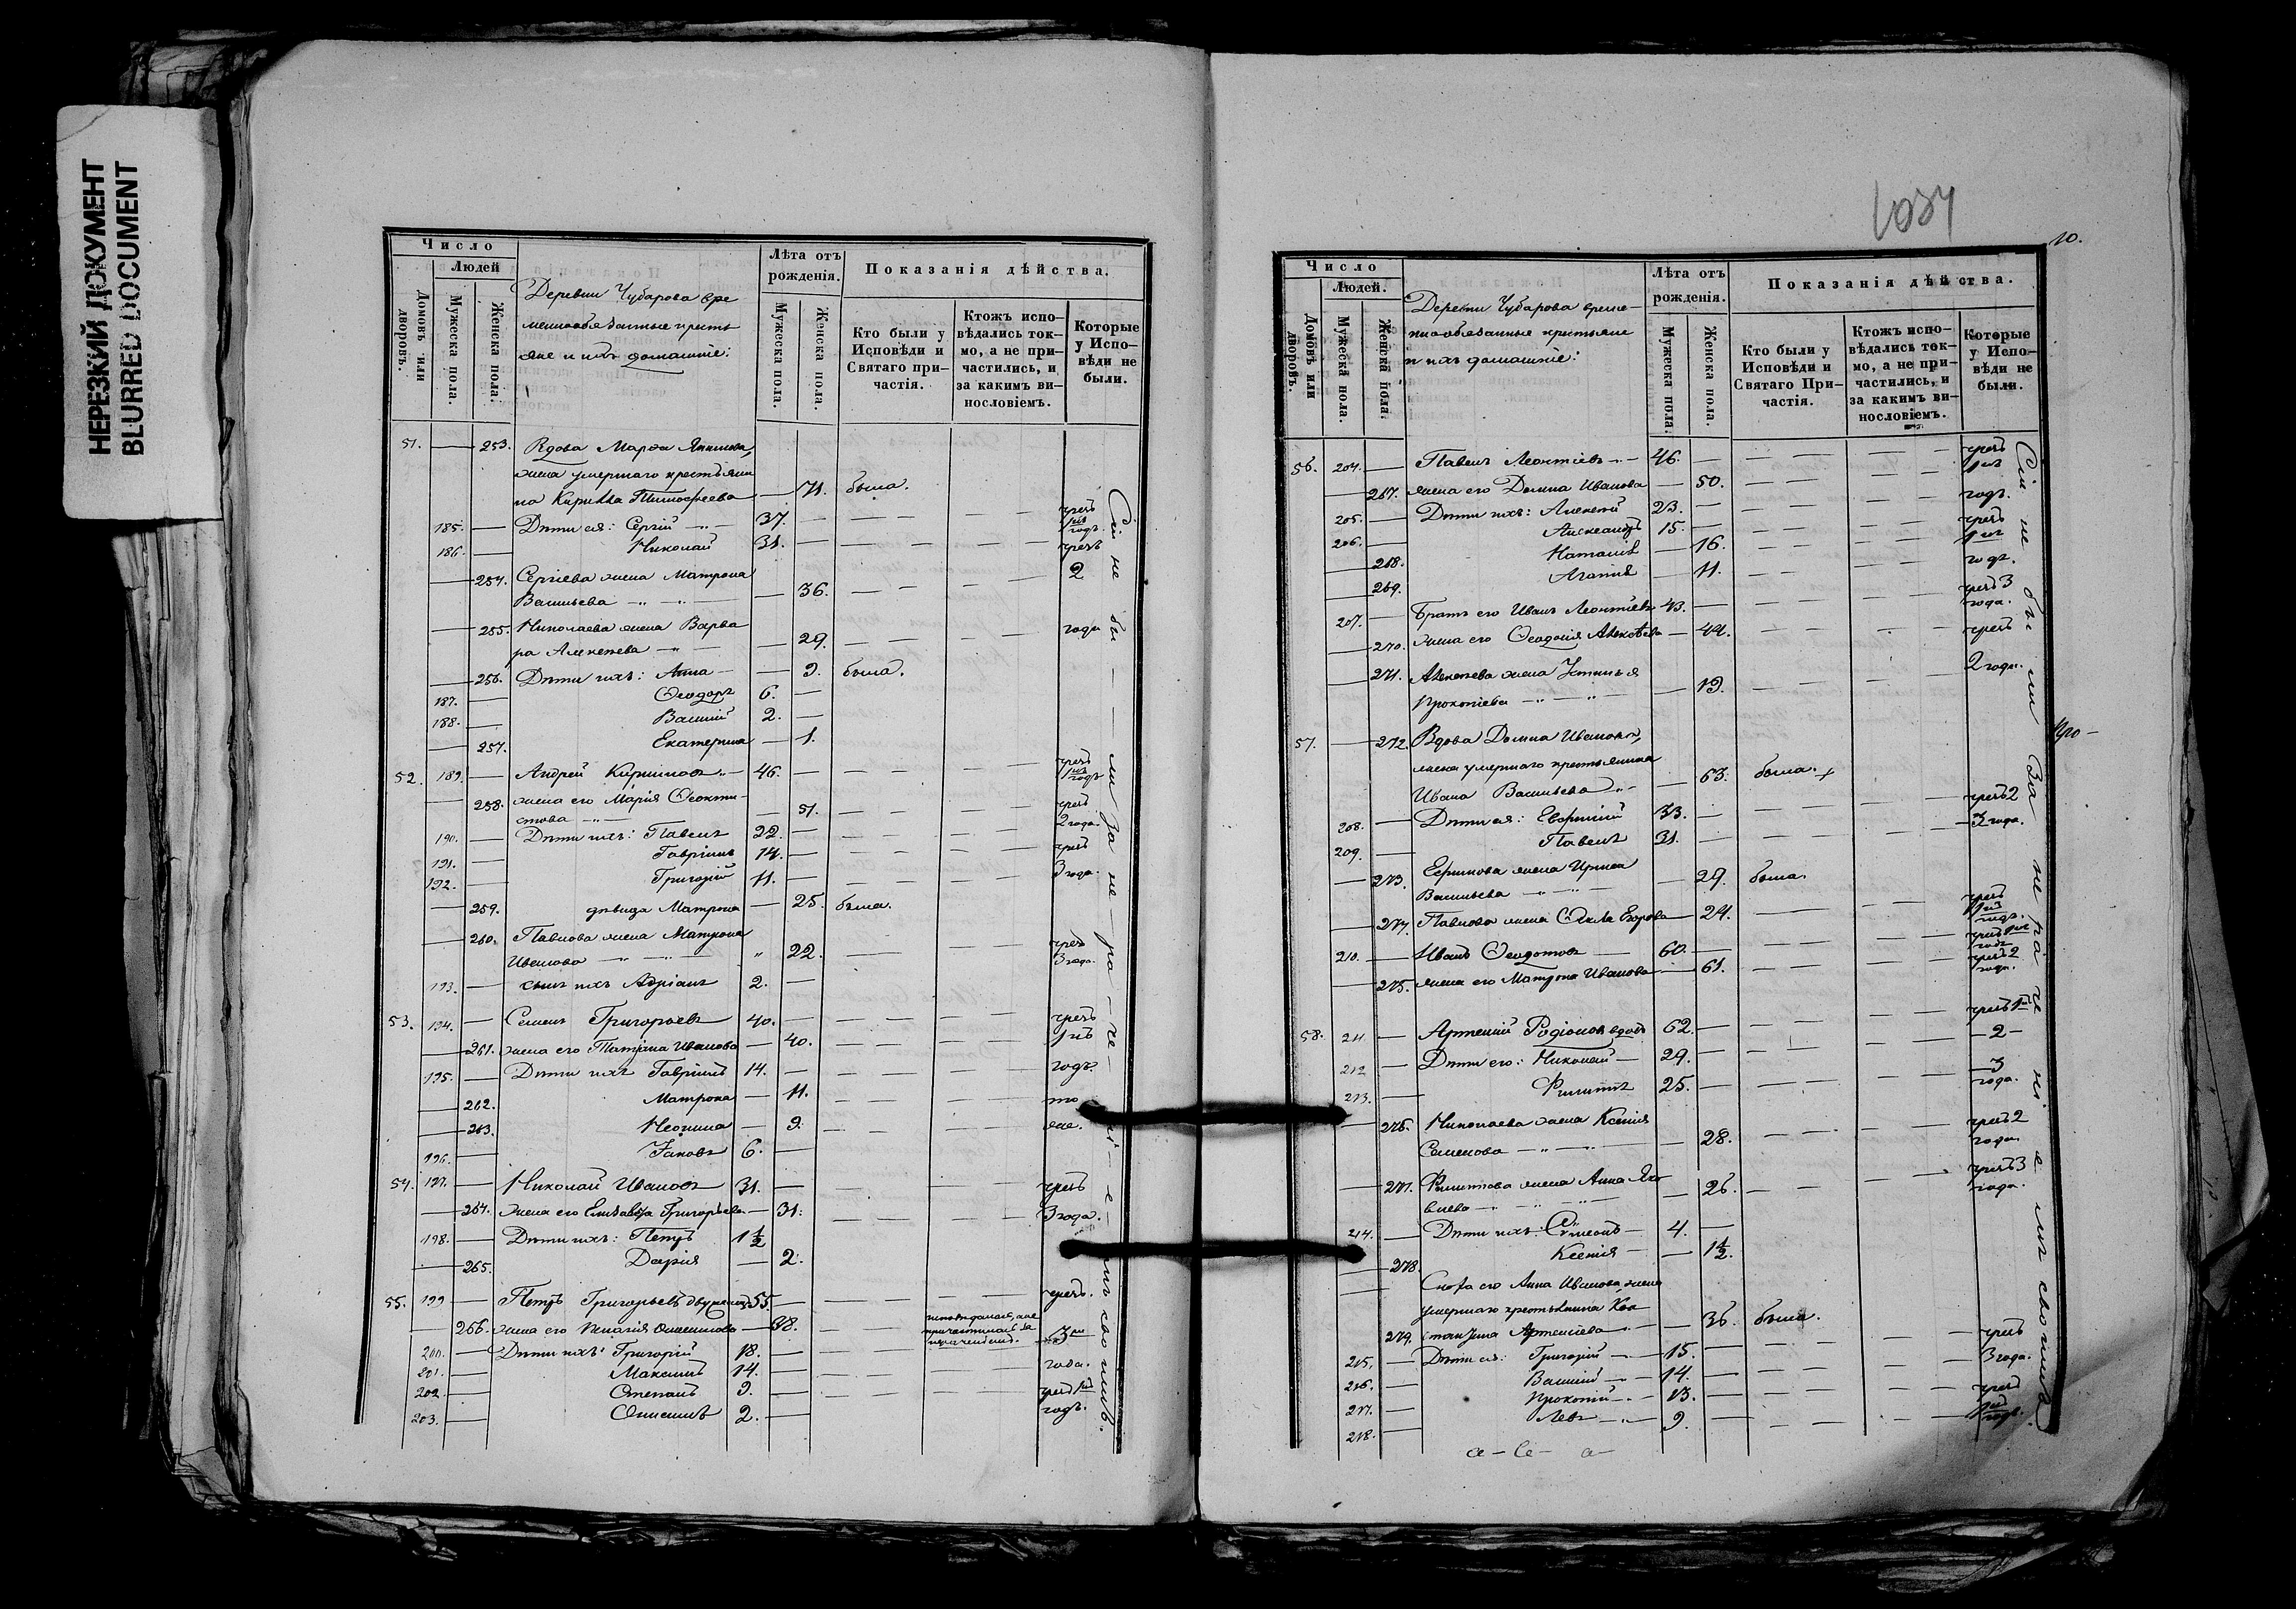 НЕРЕЗКИЙ ДОКУМЕНТ
BLURRED DOCUMENT
Число
Людей
Домовъ или дворовъ.
Мужеска пола.
Женска пола.
Деревни Чубарова вре
меннообязанные кресть
яне и ихъ домашніе:
Лѣта отъ рожденія.
Мужеска пола.
Женска пола.
Показанія дѣйства.
Кто были у Исповѣди и Святаго при-
частія.
Ктожъ испо-
вѣдались ток-
мо, а не при-
частились, и
за какимъ ви-
нословіемъ.
Которые
у Испо-
вѣди не
были.
51. — 253. Вдова Марѳа
жена умершаго крестьяни
на Кирилла Тимофеева — 71. была.
185. — Дѣти ея: Сергій 37. — чрезъ 1нъ годъ.
186. — Николай 31. — чрезъ
— 254. Сергіева жена Матрона 2
Васильева — 36.
— 255. Николаева жена Варва
ра Алексеева — 29. года
— 256. Дѣти ихъ: Анна — 9. была.
187. — Ѳеодоръ 6. —
188. — Василій 2. —
— 257. Екатерина — 1.
52. 189. — Андрей Кирилловъ 46. — чрезъ 1нъ годъ
— 258. жена его Марія Ѳеокти-
стова — 51. чрезъ 2 года.
190. — Дѣти ихъ: Павелъ 22. —
191. — Гавріилъ 14. — чрезъ
192. — Григорій 11. — 3 года.
— 259. дѣвица Матрона — 25. была.
— 260. Павлова жена Матрона
Иванова 22. чрезъ 3 года.
193. — сынъ ихъ Адріанъ 2. —
53. 194. — Семенъ Григорьевъ 40. — чрезъ
— 261. жена его Татіана Иванова — 40. 1нъ
195. — Дѣти ихъ Гавріилъ 14. — годъ.
— 262. Матрона — 11. то
— 263. Неонила — 9. же.
196. — Іаковъ 6. —
54. 197. — Николай Ивановъ 31. — чрезъ
— 264. жена его Елисавета Григорьева — 31. 3 года.
198. — Дѣти ихъ: Петръ 1½
— 265. Дарія — 2.
55. 199 — Петръ Григорьевъ 55. — чрезъ.
— 266. жена его Пелагія — 38. 3
200. — Дѣти ихъ: Григорій 18. —
201. — Максимъ 14. — года.
202. — Степанъ 9. — чрезъ 1нъ
203. — Онисимъ 2. — годъ.
Сіи не бы — — ли за не — ра — че — ні — е — мъ своимъ.
1034
10.
Число
Людей.
Домовъ или дворовъ.
Мужеска пола.
Женска пола.
Деревни Чубарова време
ннообязанные крестьяне
и ихъ домашніе:
Лѣта отъ рожденія.
Мужеска пола.
Женска пола.
Показанія дѣйства.
Кто были у
Исповѣди и
Святаго При-
частія.
Ктожъ испо-
вѣдались ток-
мо, а не при-
частились, и
за какимъ ви-
нословіемъ.
Которые
у Испо-
вѣди не
были.
56. 204. — Павелъ Леонтіевъ 46. — чрезъ 1нъ
— 267. жена его Домна Иванова — 50. годъ.
205. — Дѣти ихъ: Алексей 23. —
206. — Александръ 15. — чрезъ 1нъ
— 268. Наталія — 16. годъ.
— 269. Агапія — 11.
207. — Братъ его Иванъ Леонтіевъ 43. — чрезъ 3 года.
— 270. жена его Ѳеодосія — 44. чрезъ
— 271. Алексеева жена Устинья 2 года.
Прокопіева — 19.
57. — 272. Вдова Домна Иванова,
жена умершаго крестьянина
Ивана Васильева 63. была.
208. — Дѣти ея: Евфимій 33. — чрезъ 2
209. — Павелъ 31. — 3 года.
— 273. Ефимова жена Ирина
Васильева — 29. была.
— 274. Павлова жена Ѳекла Егорова — 24. чрезъ 1нъ годъ.
210. — Иванъ Ѳеодотовъ 60. — чрезъ 1нъ годъ
— 275. жена его Матрона Иванова — 61. чрезъ 2 года.
58. 211 — Артемій Родіоновъ вдовъ 62. — чрезъ 1нъ
212 — Дѣти его: Николай 29. — — 2 —
213. — Филиппъ 25. — 3 года.
— 276. Николаева жена Ксенія
Семенова — 28. чрезъ 2 года.
— 277. Филиппова жена Анна Яко
влева — 26. чрезъ 3 года.
214. — Дѣти ихъ: Сѵмеонъ 4. —
— 278. Ксенія — 1½.
Сноха его Анна Иванова, жена
умершаго крестьянина Кон
279. стантина Артеміева — 36. была.
215. — Дѣти ея: Григорій 15. — чрезъ
216. — Василій 14. — 3 года.
217. — Прокопій 13. — чрезъ
218. — Левъ 9. — 1нъ годъ.
Сіи не бы ли За не ра че ні е мъ своимъ.